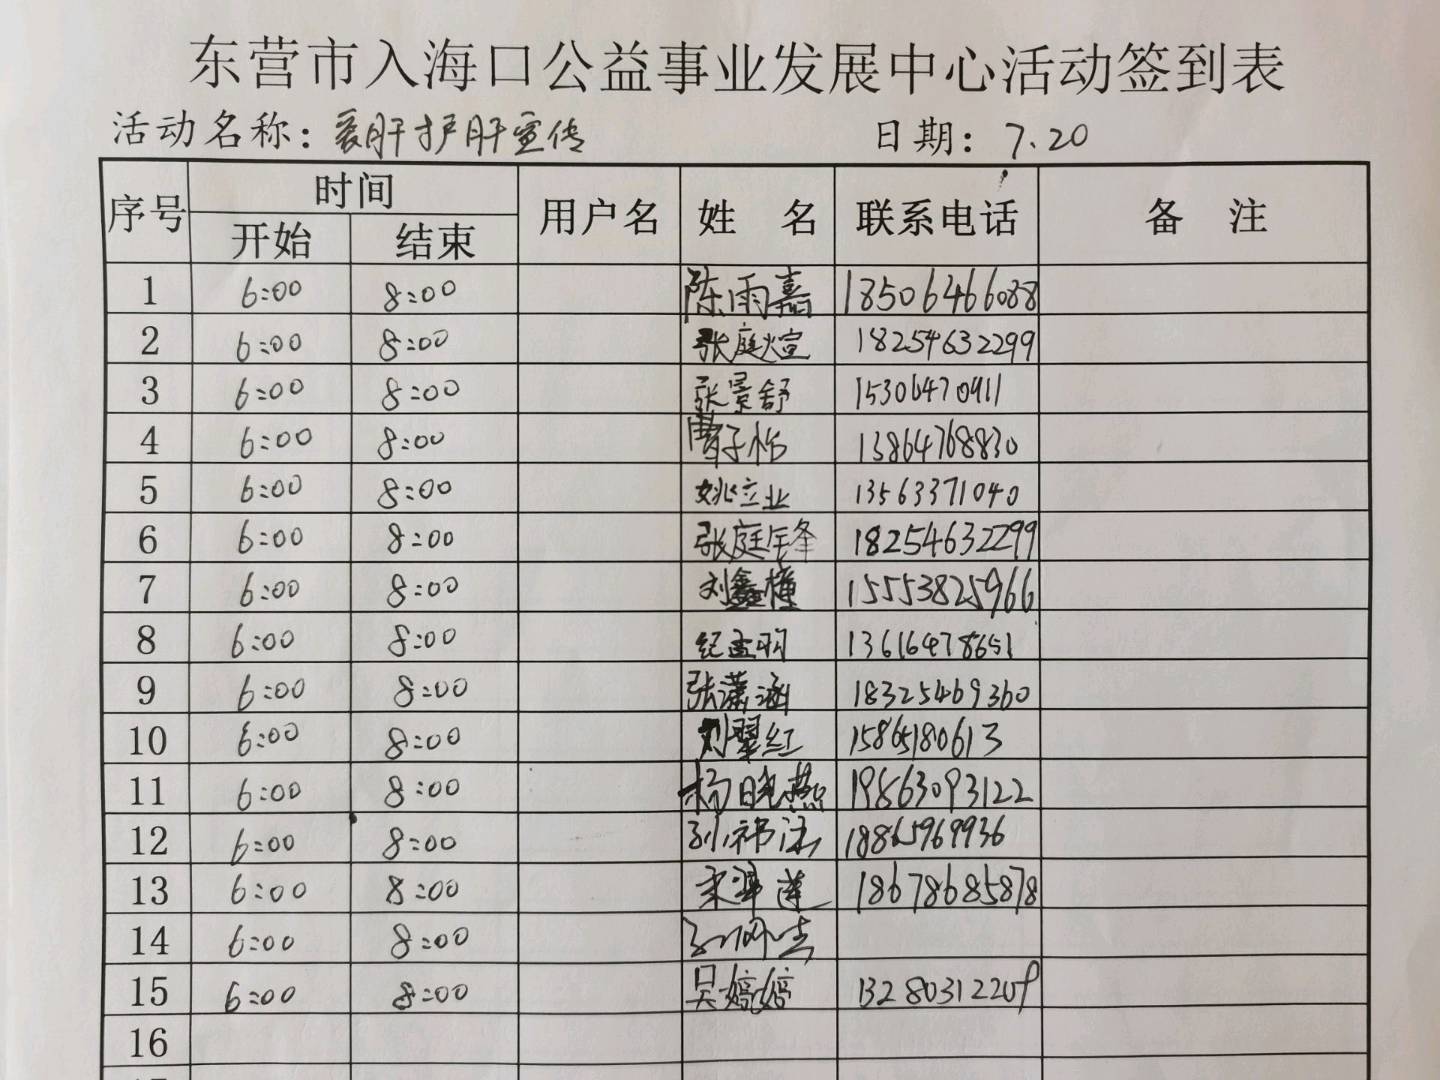 东营市入海口公益事业发展中心活动签到表
活动名称：爱肝护肝宣传 日期：7.20
序号 时间 用户名 姓 名 联系电话 备 注
开始 结束
1 6:00 8:00 陈雨嘉 18506466088
2 6:00 8:00 张庭煊 18254632299
3 6:00 8:00 张景舒 15306470911
4 6:00 8:00 曹子怡 13864768830
5 6:00 8:00 姚立业 13563371040
6 6:00 8:00 张庭锋 18254632299
7 6:00 8:00 刘鑫橦 15553825966
8 6:00 8:00 纪孟羽 13616478651
9 6:00 8:00 张潇涵 18325469360
10 6:00 8:00 刘翠红 15865180613
11 6:00 8:00 杨晓燕 19863093122
12 6:00 8:00 18865969936
13 6:00 8:00 宋翠莲 18678685878
14 6:00 8:00
15 6:00 8:00 吴婷婷 13280312209
16